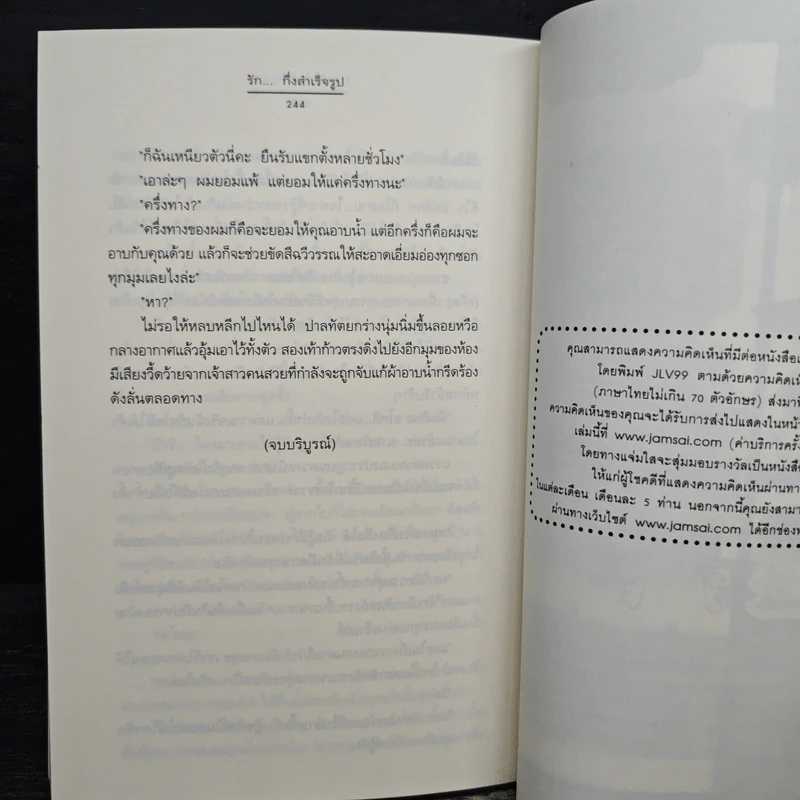 รัก... กึ่งสำเร็จรูป
244
"ก็ฉันเหนียวตัวนี่คะ ยืนรับแขกตั้งหลายชั่วโมง"
"เอาล่ะๆ ผมยอมแพ้ แต่ยอมให้แค่ครึ่งทางนะ"
"ครึ่งทาง?"
"ครึ่งทางของผมก็คือจะยอมให้คุณอาบน้ำ แต่อีกครึ่งก็คือผมจะ
อาบกับคุณด้วย แล้วก็จะช่วยขัดสีฉวีวรรณให้สะอาดเอี่ยมอ่องทุกซอก
ทุกมุมเลยไงล่ะ"
"หา?"
ไม่รอให้หลบหลีกไปไหนได้ ปาลทัตยกร่างนุ่มนิ่มขึ้นลอยหวือ
กลางอากาศแล้วอุ้มเอาไว้ทั้งตัว สองเท้าก้าวตรงดิ่งไปยังอีกมุมของห้อง
มีเสียงวี้ดว้ายจากเจ้าสาวคนสวยที่กำลังจะถูกจับแก้ผ้าอาบน้ำกรีดร้อง
ดังลั่นตลอดทาง
(จบบริบูรณ์)
คุณสามารถแสดงความคิดเห็นที่มีต่อหนังสือเ
โดยพิมพ์ JLV99 ตามด้วยความคิดเห็
(ภาษาไทยไม่เกิน 70 ตัวอักษร) ส่งมาที่
ความคิดเห็นของคุณจะได้รับการส่งไปแสดงในหน้า
เล่มนี้ที่ www.jamsai.com (ค่าบริการครั้ง
โดยทางแจ่มใสจะสุ่มมอบรางวัลเป็นหนังสือ
ให้แก่ผู้โชคดีที่แสดงความคิดเห็นผ่านทา
ในแต่ละเดือน เดือนละ 5 ท่าน นอกจากนี้คุณยังสามา
ผ่านทางเว็บไซต์ www.jamsai.com ได้อีกช่องท